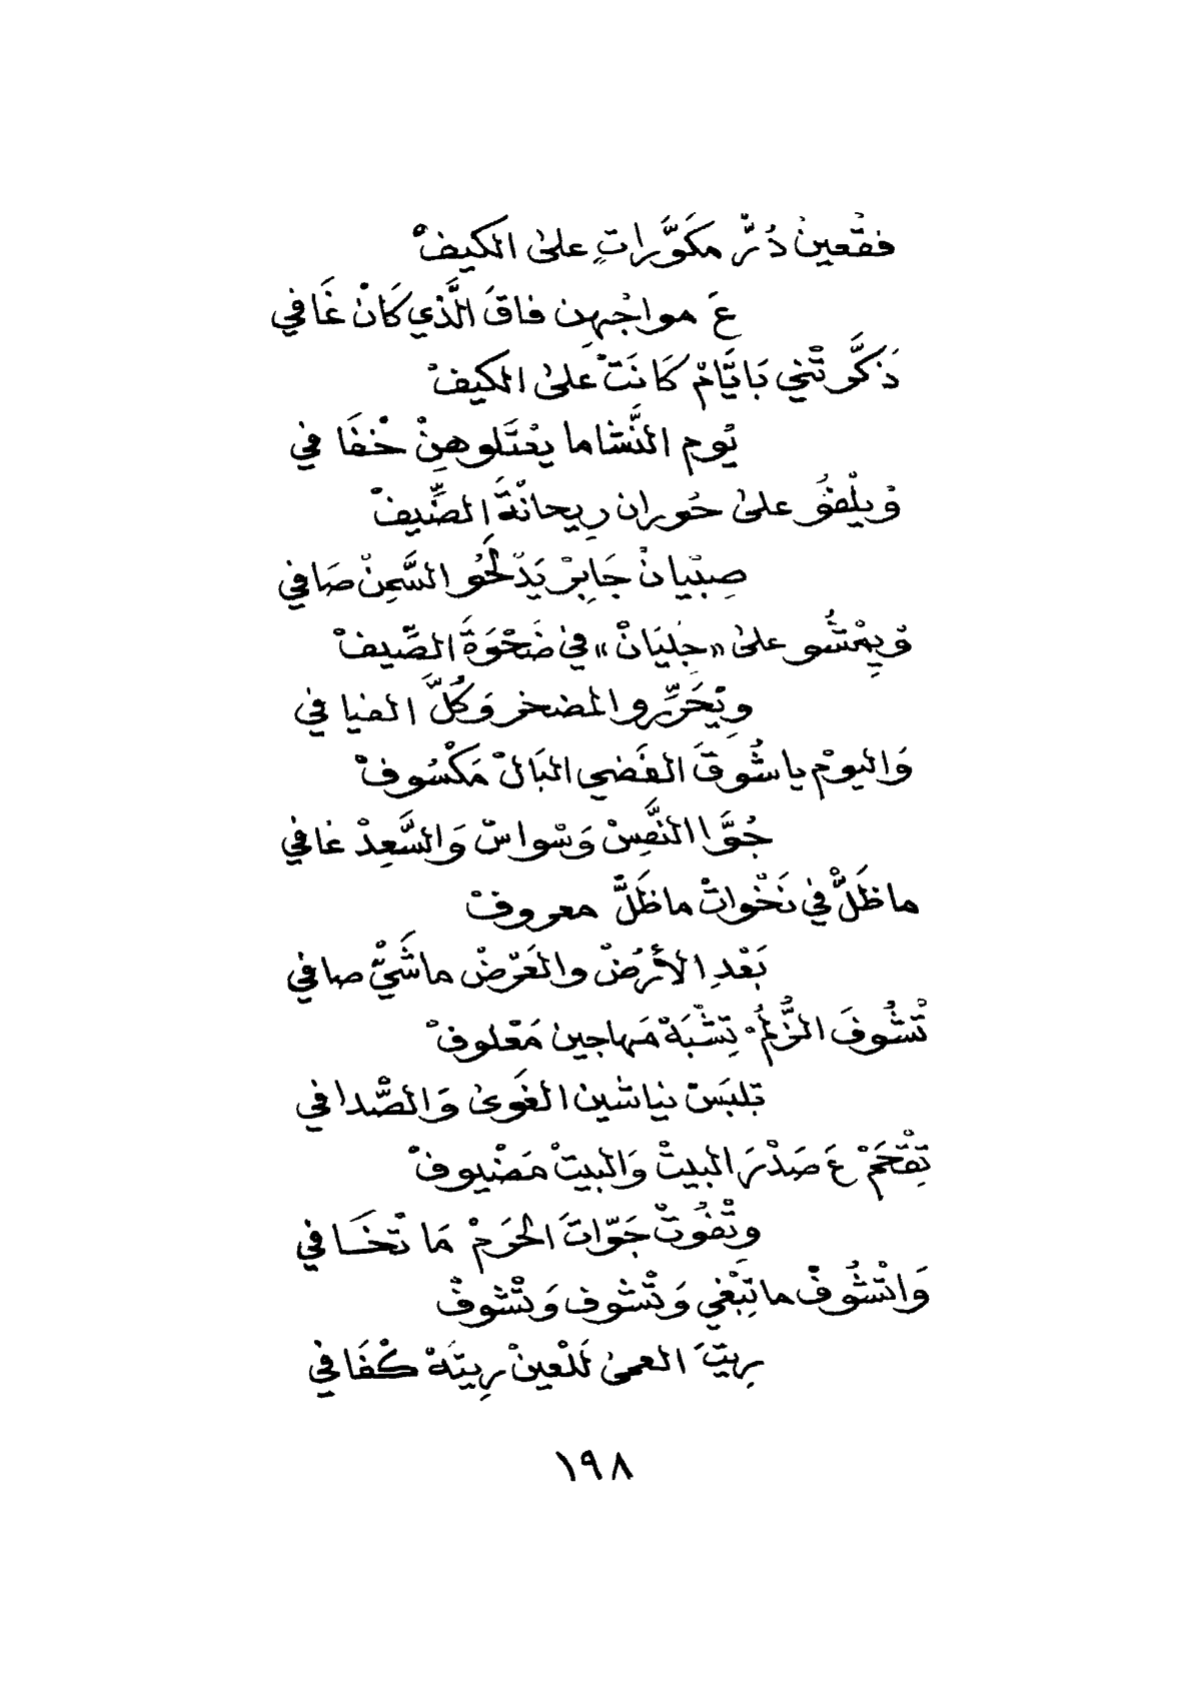 فقْعينْ دُرٍّ مكَوَّراتٍ على الكيفْ
عَ مواجْهِن فاقَ الَّذي كَانْ غَافي
ذَكَّرتْني بَايَّامْ كَانَتْ على الكيفْ
يُوم النَّشاما يعْتَلوهِنْ خْفَافي
وْيلْفُو على حُوران رِيحانْةَ الصِّيفْ
صِبْيانْ جَابِرْ يَدْلَحُو السَّمِنْ صَافي
وْيِمْشُو على «جِليَانْ» في ضَحْوَةَ الصِّيفْ
وِيْحَرِّروا المضخر وَكُلَّ الفيافي
وَاليومْ ياشُوقَ الفَضي البَالْ مَكْسُوفْ
جُوَّا النَّفِسْ وَسْواسْ وَالسَّعِدْ غافي
ماظَلّْ في نَخْواتْ ماظَلَّ معروفْ
بَعْدِ الأَرْضْ والعَرْضْ ماشَيّْ صافي
تْشُوفَ الزُّلُمْ تِشْبَهْ مَهاجين مَعْلوفْ
تلبَسْ نياشين الغَوى وَالصّْدافي
تِقْحَمْ عَ صَدْرَ البيتْ وَالبيتْ مَضْيوفْ
وِتْفُوتْ جَوّاتَ الحَرَمْ مَا تْخَافي
وَاتْشُوفْ ماتِبْغي وَتْشوف وَتْشوفْ
رِيتَ العمى لَلْعينْ رِيتَهْ كْفَافي
١٩٨